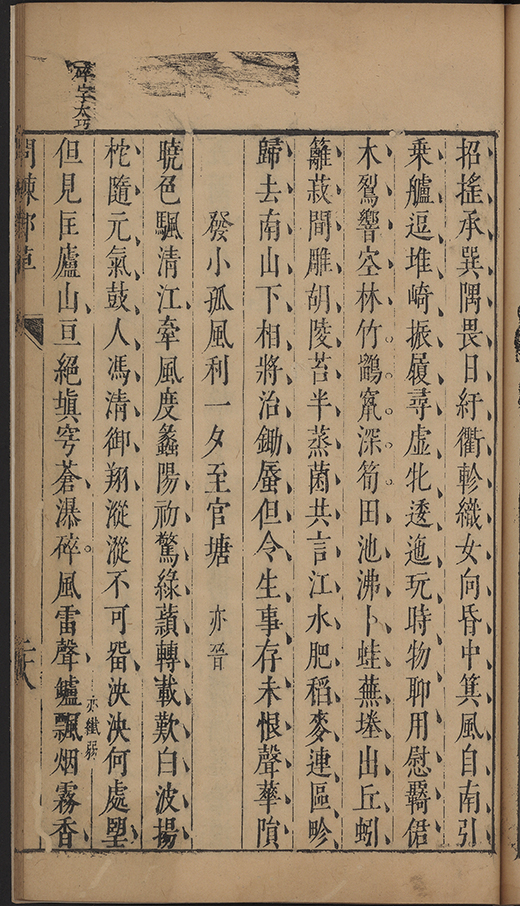 招搖承巽隅畏日紆衢軫織女向昏中箕風自南引
乗艫逗堆崎振履尋虛牝透迤玩時物聊用慰羇侰
木鴷響空林竹鸓竄深筍田池沸卜蛙蕪堘出丘蚓
籬菽間雕胡陵苕半蒸菌共言江水肥稻麥連區畛
歸去南山下相將治鋤蜃但令生事存未恨聲華隕
發小孤風利一夕至官塘 亦晉
曉色颿清江牽風度蠡陽初驚綠蘋轉載歎白波揚
柁隨元氣鼓人馮清御翔漎漎不可畱泱泱何處朢
但見匡廬山亘絕塡穹蒼瀑碎風雷聲鑪飄烟霧香
亦纖
碎字太巧
問棘郵草
二十八